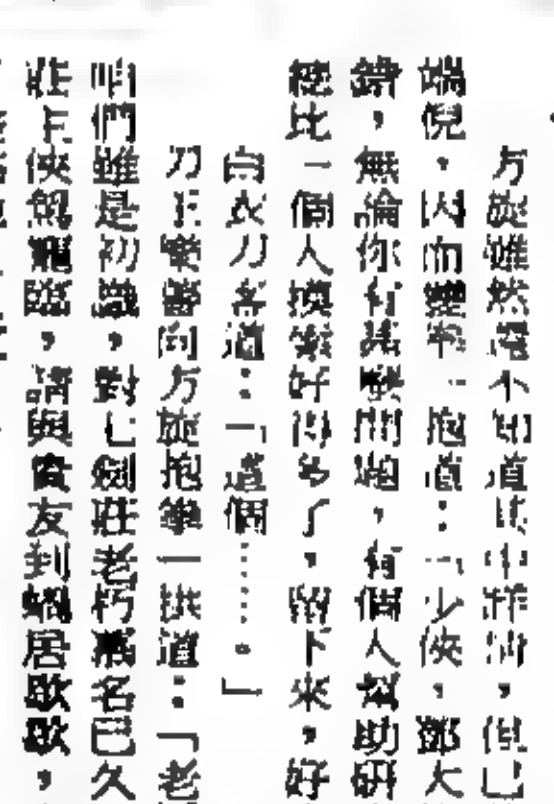 方旋雖然還不知道其中詳情，但已
端倪，因而雙拳一抱道：「少俠，鄧大
錯，無論你有甚麼問題，有個人幫助研
總比一個人摸索好得多了，留下來，好
白衣刀客道：「這個……。」
刀王樂爵向方旋抱拳一拱道：「老
咱們雖是初識，對七劍莊老朽慕名已久
莊上俠駕寵臨，請與貴友到蝸居歇歇，